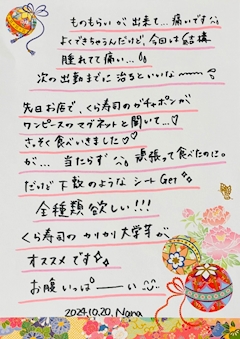 ものもらいが出来て…痛いです
よくできちゃうんだけど、今回は結構
腫れてて痛い…。
次の出勤までに治るといいな〜〜
先日お店で、くら寿司のガチャポンが
ワンピースのマグネットと聞いて…♡
さっそく食べいきました♡♡
が… 当たらず 頑張って食べたのに。
だけど下敷のようなシートGet
全種類欲しい!!!
くら寿司のカリカリ大学芋が
オススメです
お腹いっぱーーい
2024.10.20. Nana